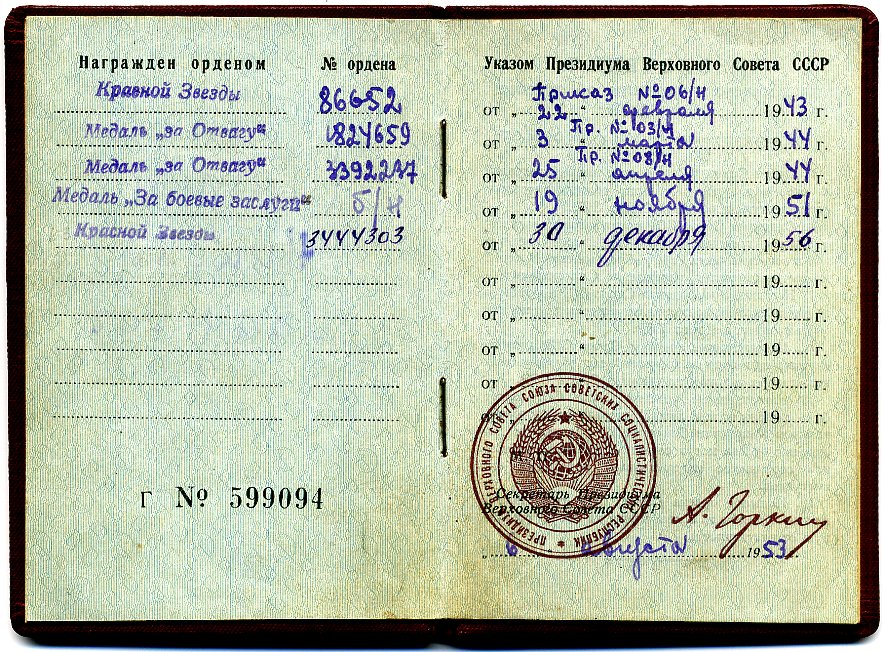 Награжден орденом № ордена
Красной Звезды 86652
Медаль „за Отвагу“ 1824659
Медаль „за Отвагу“ 3392237
Медаль „За боевые заслуги“ б/н
Красной Звезды 3444303
Г № 599094
Указом Президиума Верховного Совета СССР
Приказ № 06/н
от „ 22 “ февраля 1943 г.
Пр. № 03/н
от „ 3 “ марта 1944 г.
Пр. № 08/н
от „ 25 “ апреля 1944 г.
от „ 19 “ ноября 1951 г.
от „ 30 “ декабря 1956 г.
от „ “ 19 г.
от „ “ 19 г.
от „ “ 19 г.
от „ “ 19 г.
от „ “ 19 г.
ПРЕЗИДИУМ ВЕРХОВНОГО СОВЕТА СОЮЗА СОВЕТСКИХ СОЦИАЛИСТИЧЕСКИХ РЕСПУБЛИК
Секретарь Президиума
Верховного Совета СССР
А. Горкин
„ 6 августа 1953